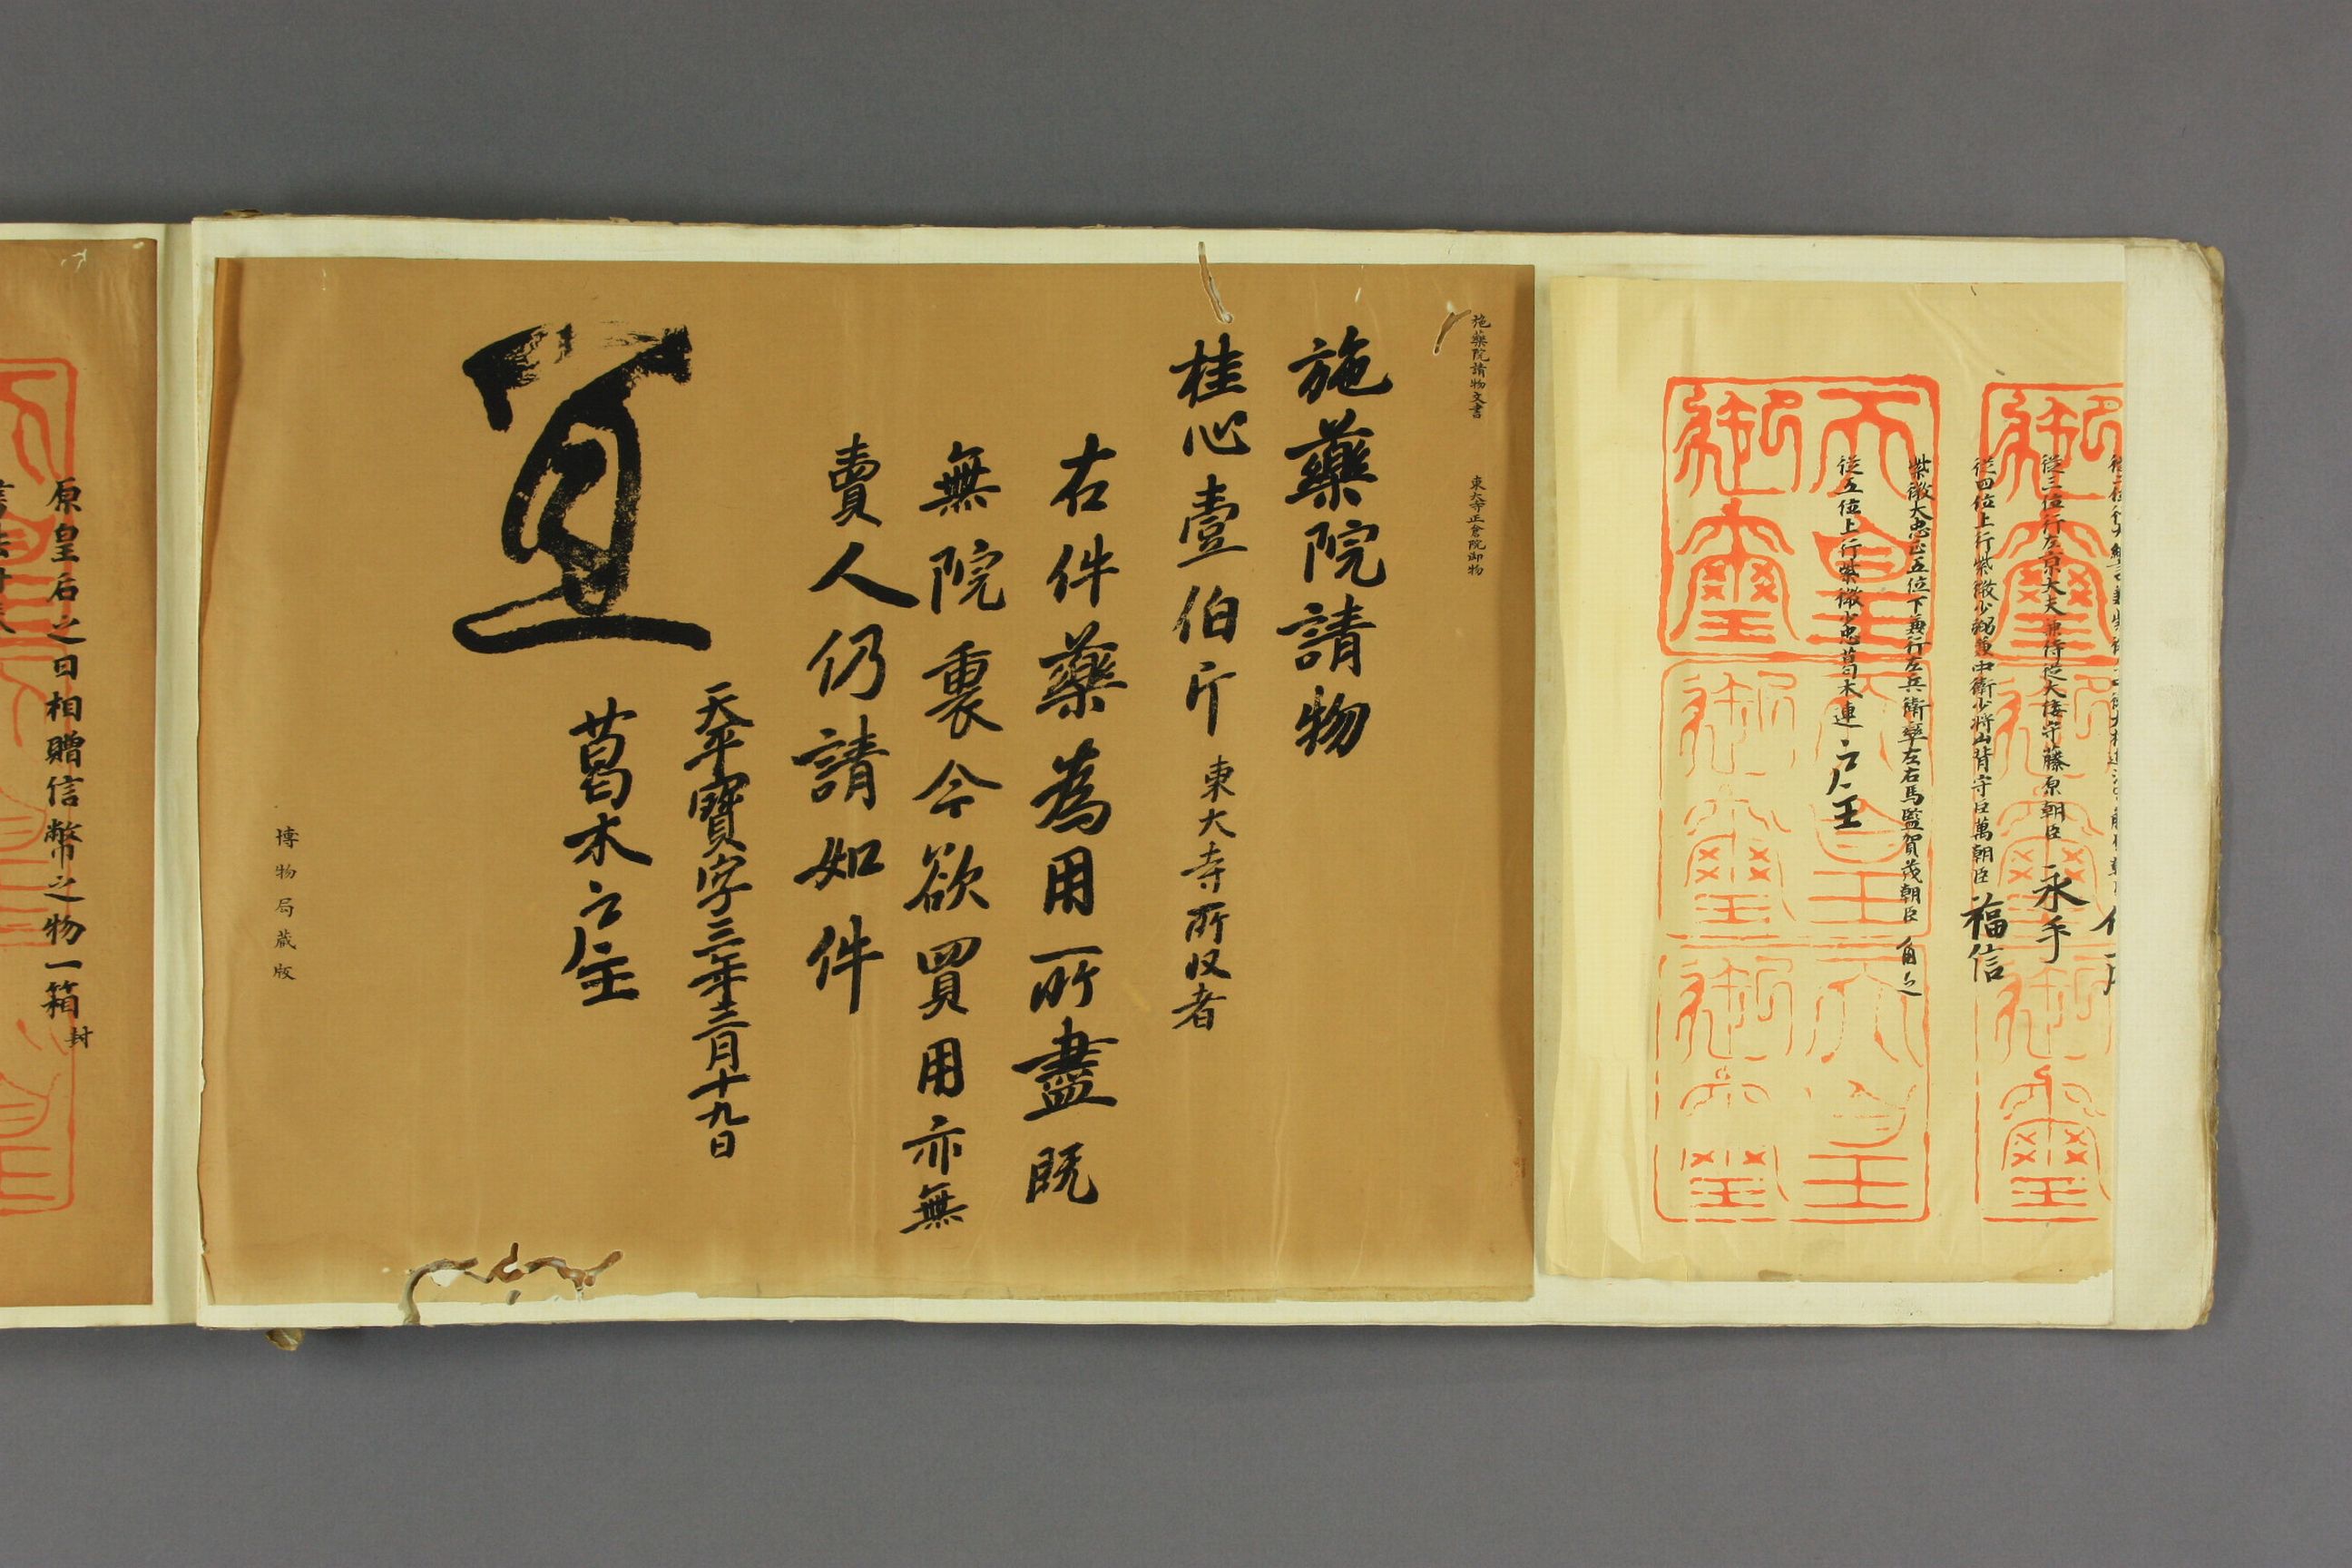 從三位行左京大夫兼侍從大倭守藤原朝臣永手
從四位上行紫微少弼兼中衛少将山背守巨萬朝臣福信
紫微大忠正五位下兼行左兵衛率左右馬監賀茂朝臣角足
從五位上行紫微少忠葛木連戸主
天皇御璽
施藥院請物文書 東大寺正倉院御物
施藥院請物
桂心壹伯斤 東大寺所収者
右件藥為用所盡既
無院裏今欲買用亦無
賣人仍請如件
天平寶字三年三月十九日
葛木戸主
宜
博物局蔵版
原皇后之日相贈信幣之物一箱封